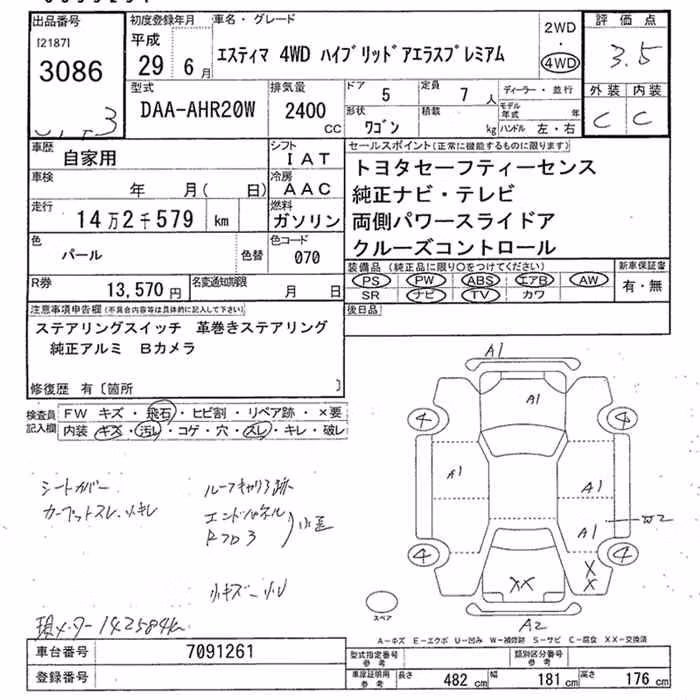 出品番号
[2187]
3086
初度登録年月
平成
29年 6月
車名・グレード
エスティマ 4WD ハイブリッドアエラスプレミアム
2WD
・
4WD
評価点
3.5
外装 内装
C C
型式
DAA-AHR20W
排気量
2400
CC
ドア
5
定員
7 人
形状
ワゴン
積載
kg
ディーラー・並行
モデル年式 年
ハンドル 左・右
車歴
自家用
シフト
IAT
車検
年 月( 日)
冷房
AAC
走行
14万2千579 km
燃料
ガソリン
色
パール
色替
色コード
070
R券
13,570 円
名変通知期限
月 日
セールスポイント(正常に機能するものに限ります)
トヨタセーフティーセンス
純正ナビ・テレビ
両側パワースライドア
クルーズコントロール
装備品(純正品に限り○をつけてください)
PS PW ABS エアB AW
SR ナビ TV カワ
新車保証書
有・無
後日品
注意事項申告欄(不具合内容等は具体的に記入して下さい)
ステアリングスイッチ 革巻きステアリング
純正アルミ Bカメラ
修復歴 有〔箇所 〕
検査員
記入欄
FW キズ・飛石・ヒビ割・リペア跡・×要
内装 キズ・汚レ・コゲ・穴・スレ・キレ・破レ
シートカバー
カーペットスレ、
ルーフキャリア跡
エンドパネル
小キズ 小U
現メーター 142584km
A1
A1
4
4
A1
A1
A1
W2
4
4
X
X
XX
A2
スペア
A-キズ E-エクボ U-凹み W-補修跡 S-サビ C-腐食 XX-交換済
車台番号
7091261
登録番号
型式指定番号
参考
類別区分番号
参考
車庫証明用
参考
長さ 482 cm 幅 181 cm 高さ 176 cm